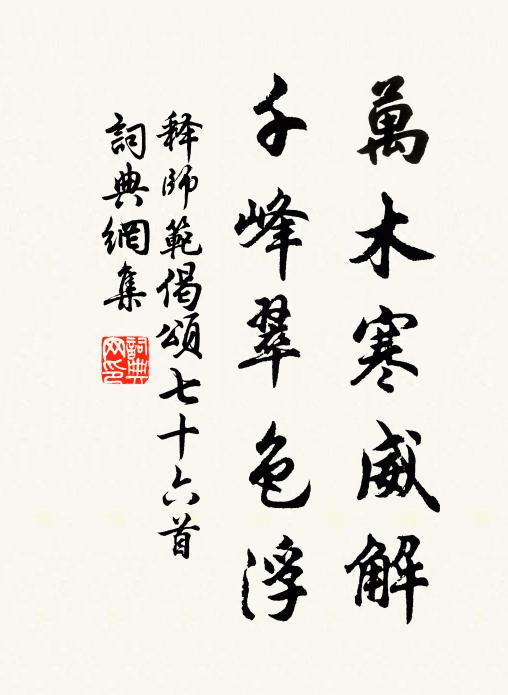 萬木寒威解
千峰翠色浮
释師範偈頌七十六首
詞典網集
詞典网印